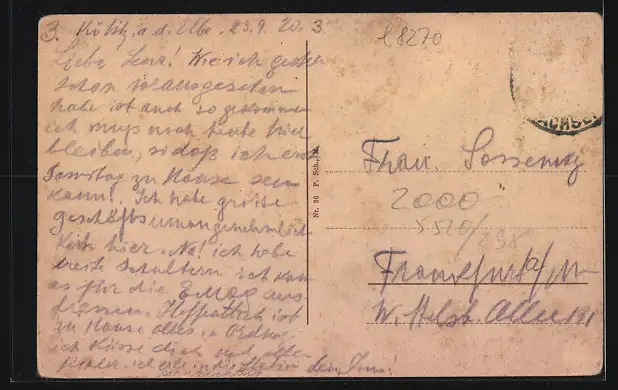 3. Kötitz a. d. Elbe. 23.9.20. 3
Liebe Lena! Wie ich gestern
schon vorausgesehen
habe ist auch so gekommen
ich muß noch heute hier
bleiben, sodaß ich erst
Samstag zu Hause sein
kann! Ich habe grosse
geschäftsunangenehmlich
keit hier. Na! ich habe
breite Schultern ich kann
es für die
fressen. Hoffentlich ist
zu Hause alles in Ordnung
ich Küsse dich und alle
Kinder. ich eile in die dein
L8270
ACHSE
Nr. 36 P. Sch., M.
Frau.
2000
5510/298
Frankfurt a/M
W. Allee 181